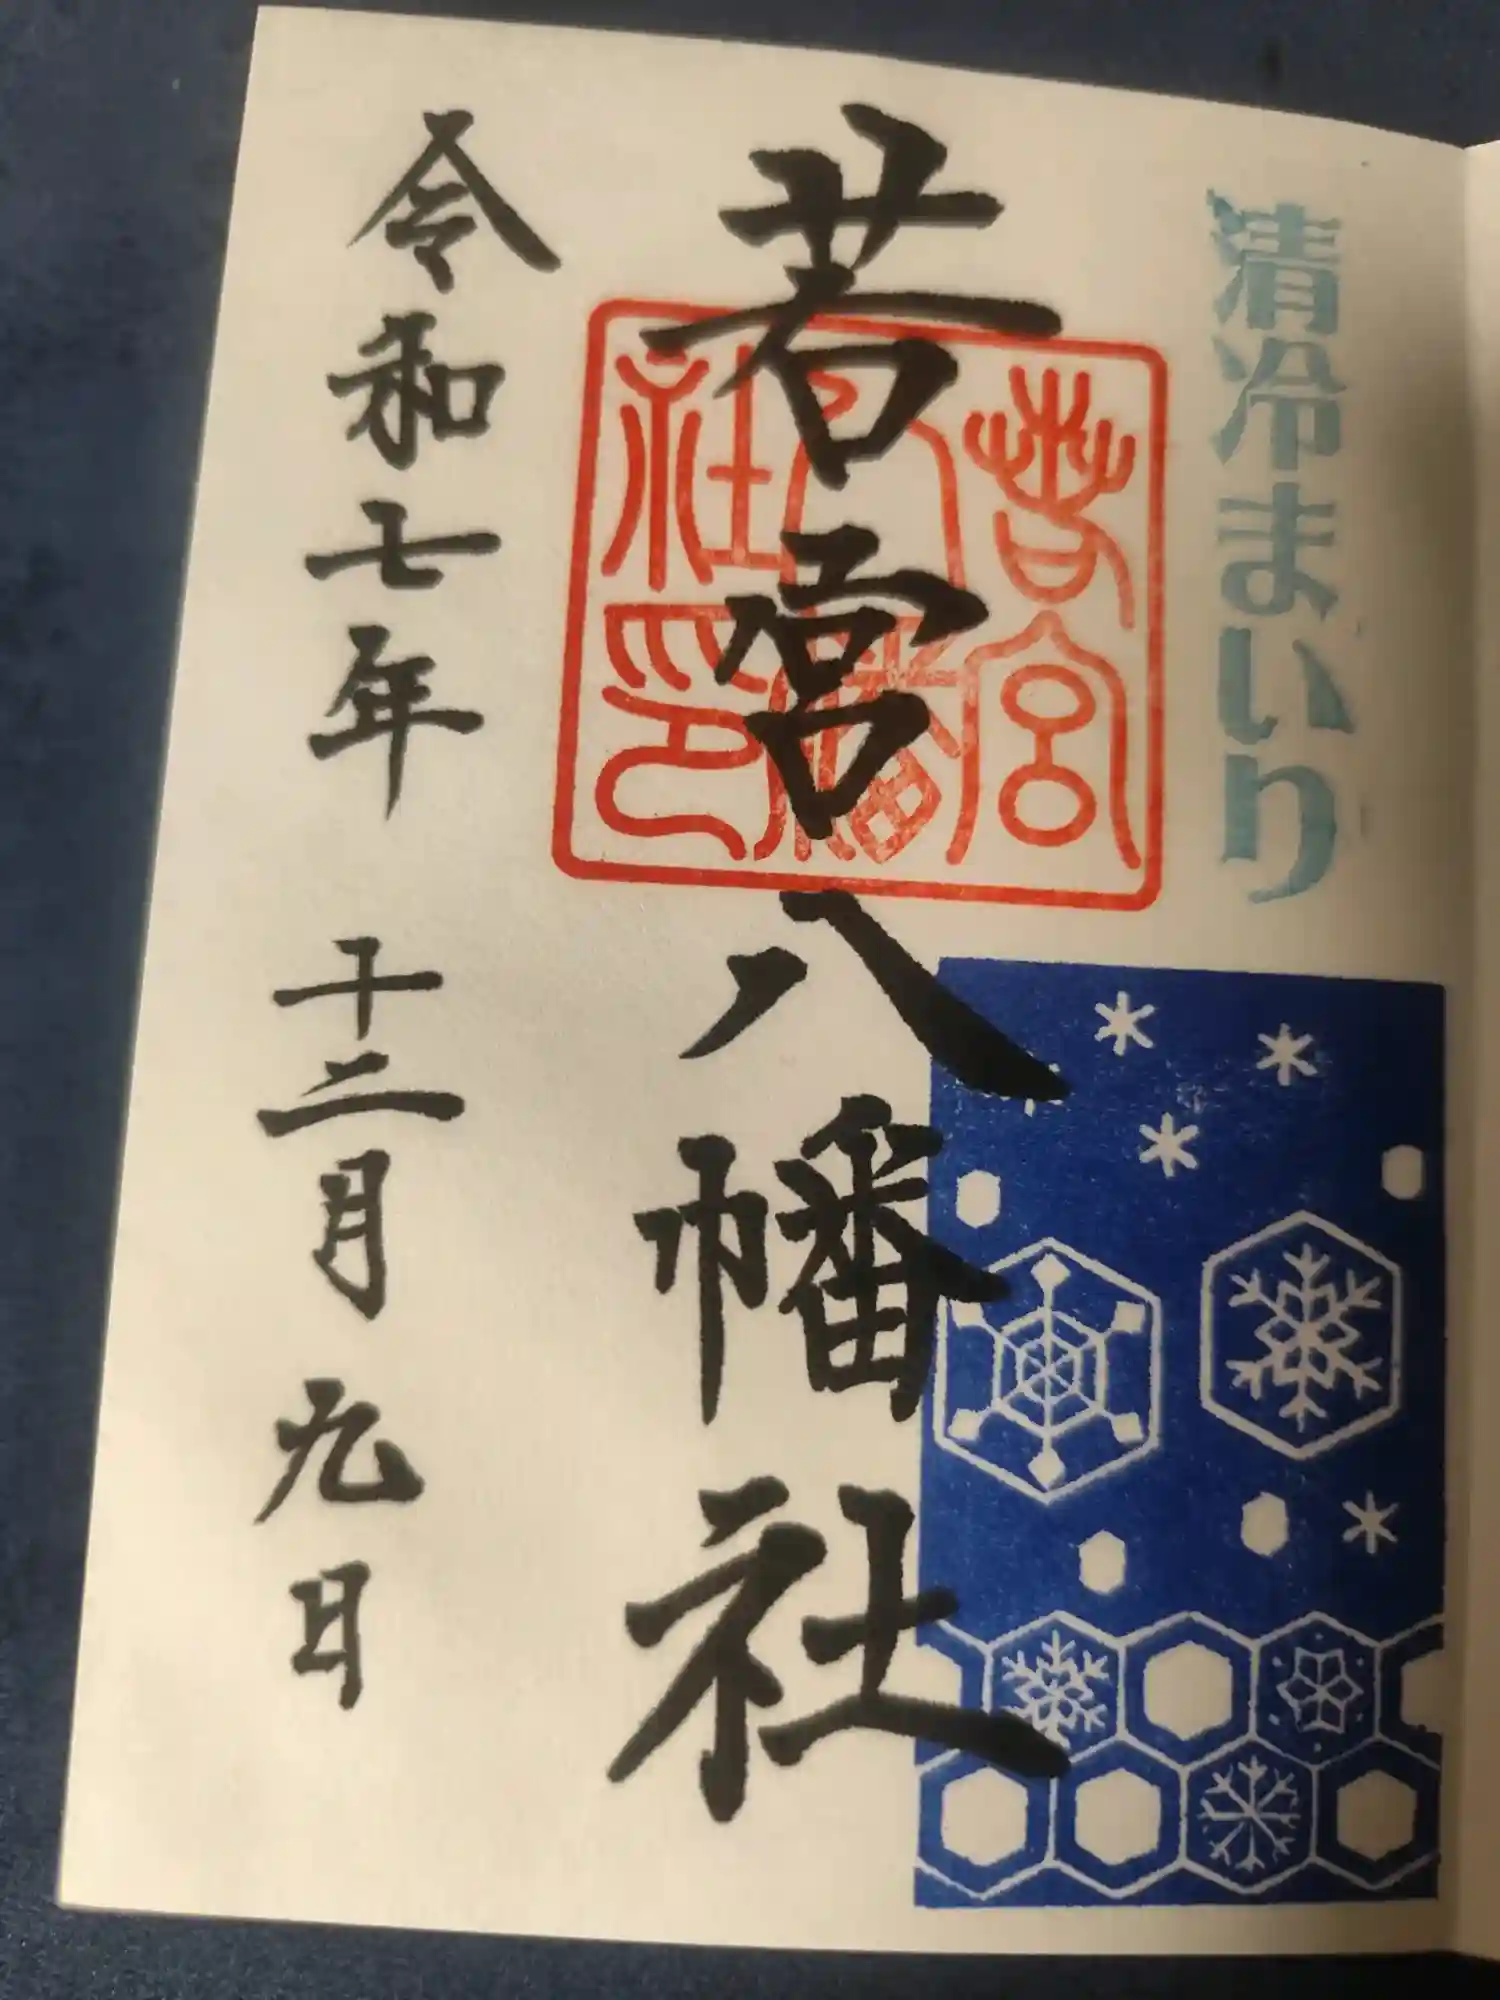 清冷まいり
若宮八幡社
若宮
八幡
社印
令和七年 十二月 九日